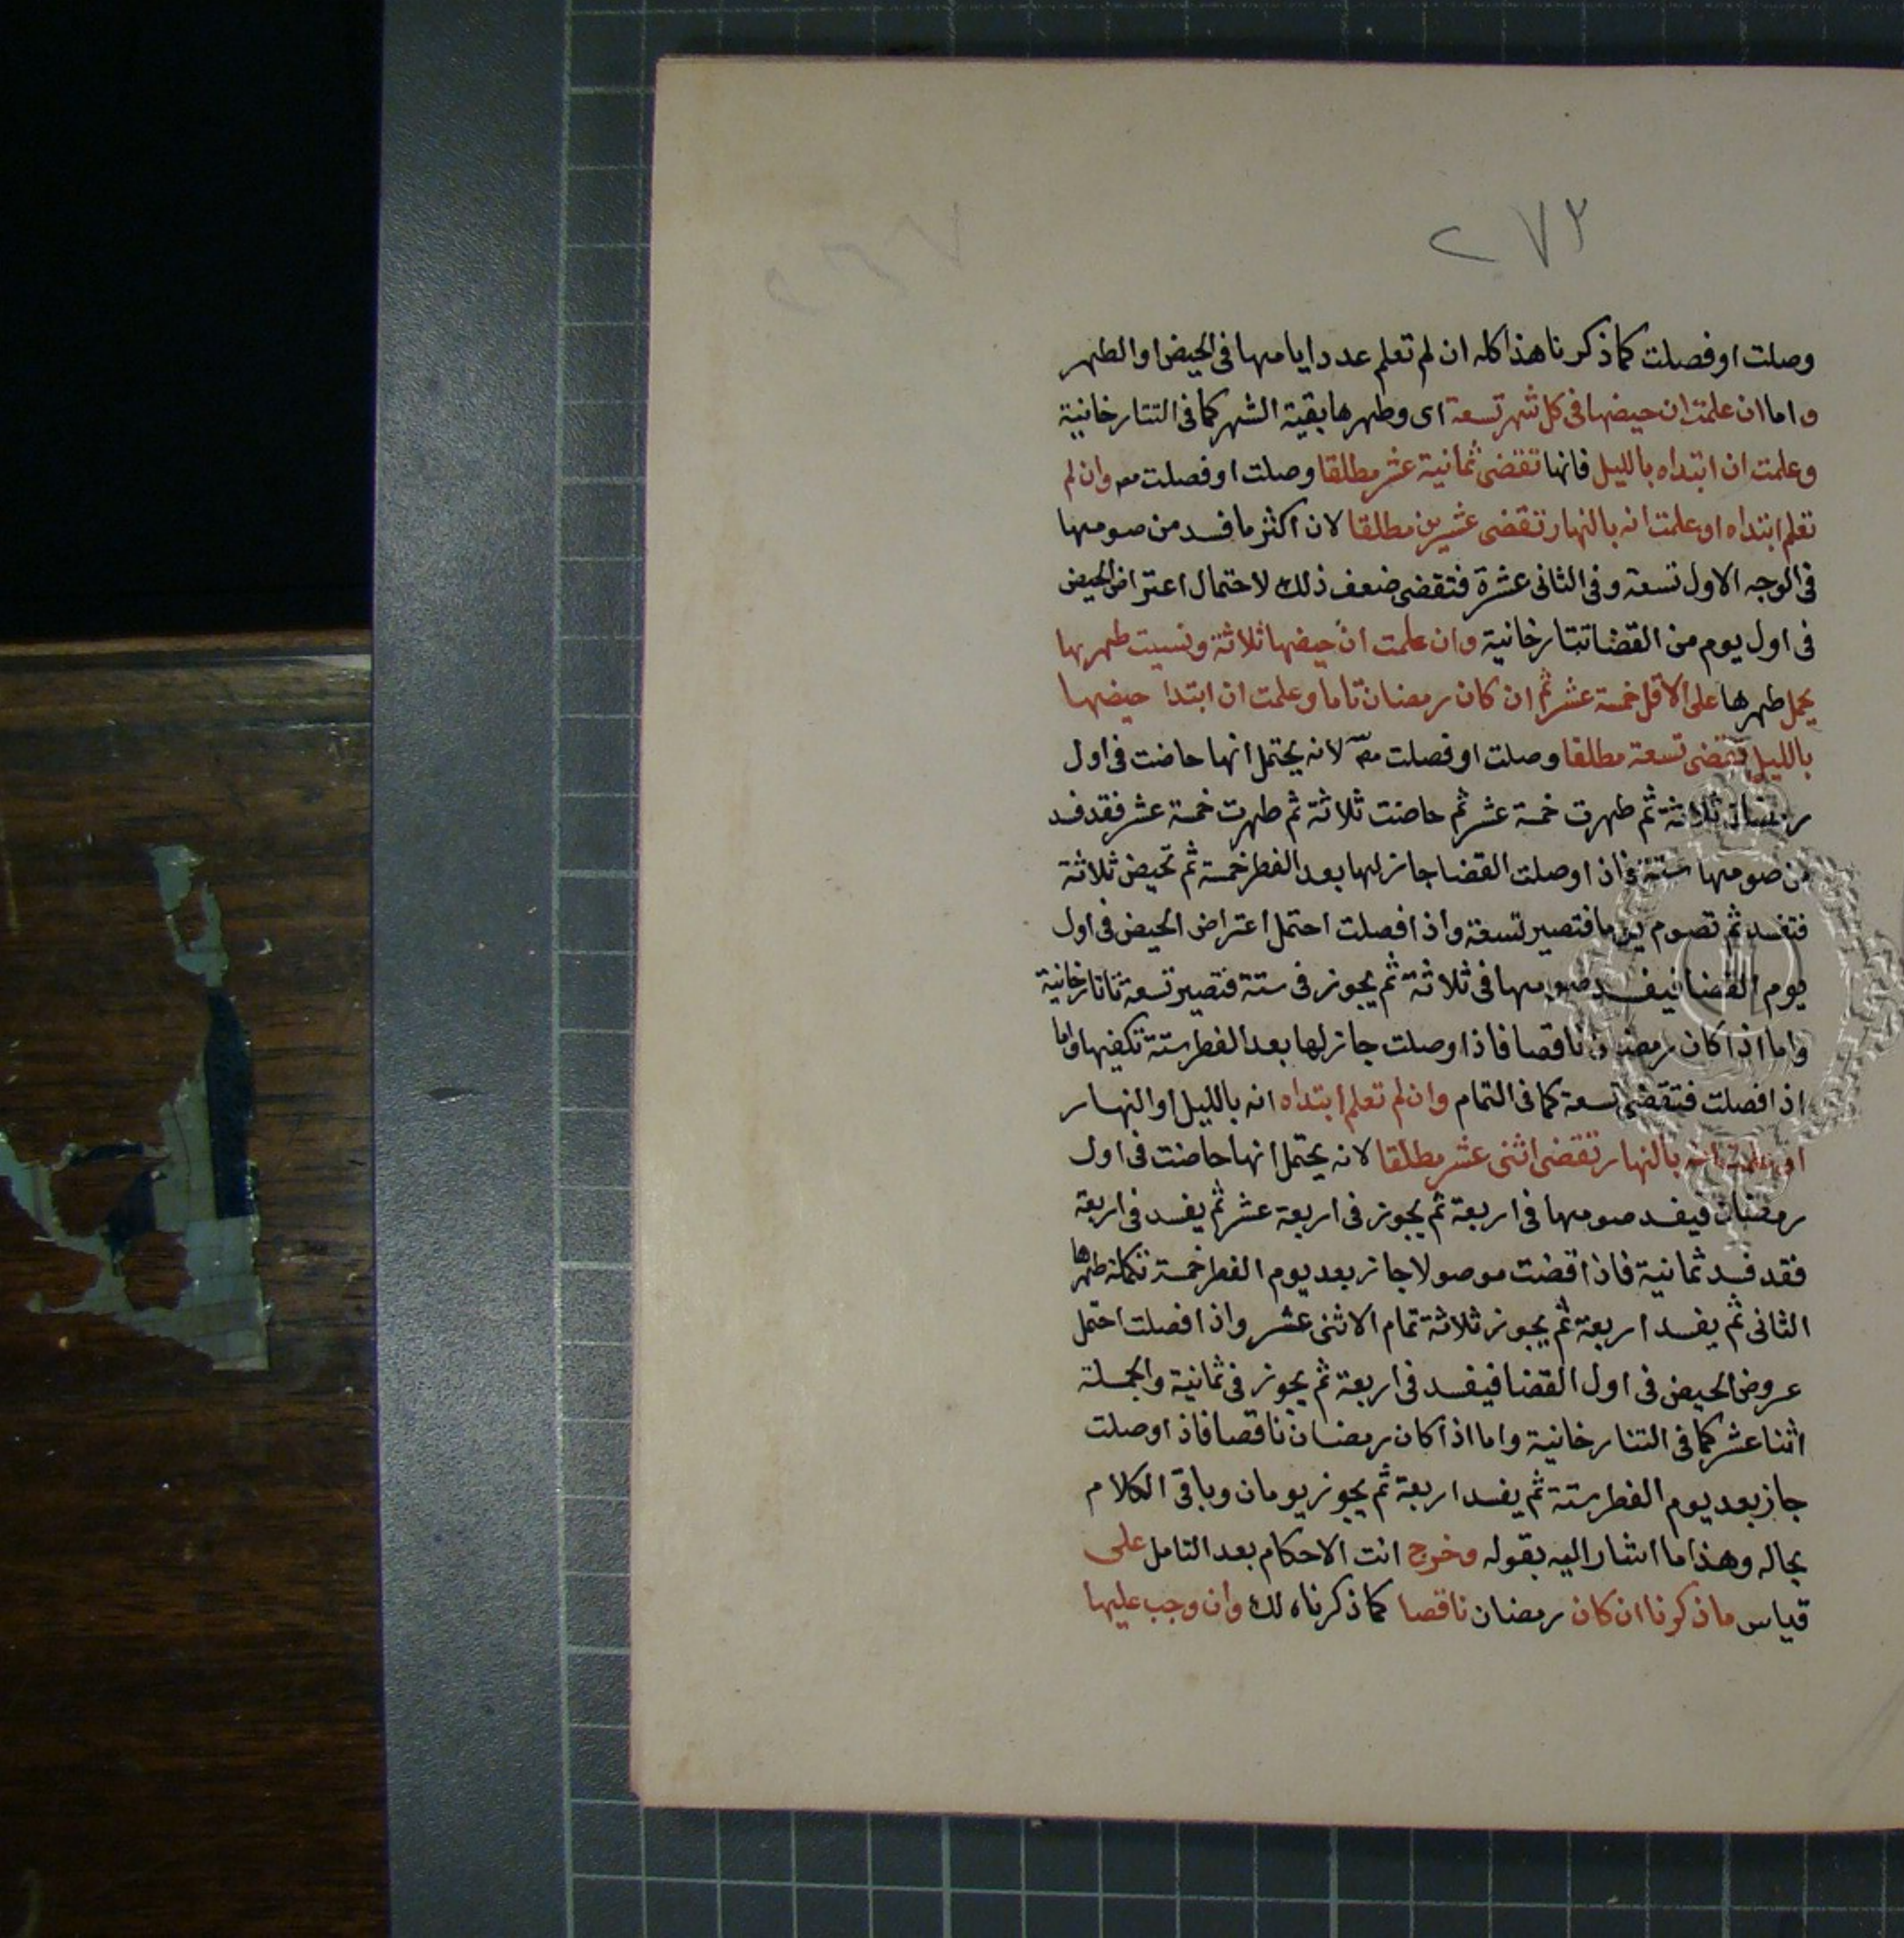 ٢٧٢
وصلت او فصلت كما ذكرنا هذا كله ان لم تعلم عدد ايامها فى الحيض او الطهر
واما ان علمت ان حيضها فى كل شهر تسعة اى وطهرها بقية الشهر كما فى التتارخانية
وعلمت ان ابتداه بالليل فانها تقضى ثمانية عشر مطلقا وصلت او فصلت مم وان لم
تعلم ابتداه او علمت انه بالنهار تقضى عشرين مطلقا لان اكثر ما فسد من صومها
فى الوجه الاول تسعة وفى الثانى عشرة فتقضى ضعف ذلك لاحتمال اعتراض الحيض
فى اول يوم من القضا تتارخانية وان علمت ان حيضها ثلاثة ونسيت طهرها
يحمل طهرها على الاقل خمسة عشر ثم ان كان رمضان تاما وعلمت ان ابتدا حيضها
بالليل تقضى تسعة مطلقا وصلت او فصلت مم لانه يحتمل انها حاضت فى اول
رمضان ثلاثة ثم طهرت خمسة عشر ثم حاضت ثلاثة ثم طهرت خمسة عشر فقد فسد
من صومها ستة فاذا وصلت القضا جاز لها بعد الفطر خمسة ثم تحيض ثلاثة
فتفسد ثم تصوم يوما فتصير تسعة واذا فصلت احتمل اعتراض الحيض فى اول
يوم القضا فيفسد صومها فى ثلاثة ثم يجوز فى ستة فتصير تسعة تاتارخانية
واما اذا كان رمضان ناقصا فاذا وصلت جاز لها بعد الفطر ستة تكفيها واما
اذا فصلت فتقضى تسعة كما فى التمام وان لم تعلم ابتداه انه بالليل او النهار
او علمت انه بالنهار تقضى اثنى عشر مطلقا لانه يحتمل انها حاضت فى اول
رمضان فيفسد صومها فى اربعة ثم يجوز فى اربعة عشر ثم يفسد فى اربعة
فقد فسد ثمانية فاذا قضت موصولا جاز بعد يوم الفطر خمسة تكملة طهرها
الثانى ثم يفسد اربعة ثم يجوز ثلاثة تمام الاثنى عشر واذا فصلت احتمل
عروض الحيض فى اول القضا فيفسد فى اربعة ثم يجوز فى ثمانية والجملة
اثنا عشر كما فى التتارخانية واما اذا كان رمضان ناقصا فاذا وصلت
جاز بعد يوم الفطر ستة ثم يفسد اربعة ثم يجوز يومان وباقى الكلام
بحاله وهذا ما اشار اليه بقوله وخرج انت الاحكام بعد التامل على
قياس ما ذكرنا ان كان رمضان ناقصا كما ذكرناه لك وان وجب عليها